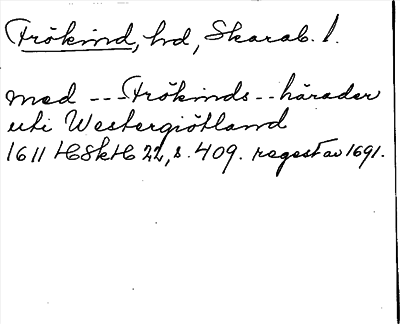 Frökind, hd, Skarab. l.
med --- Frökinds -- härader
uti Westergiötland
1611 HSkH 22, s. 409. regest av 1691.